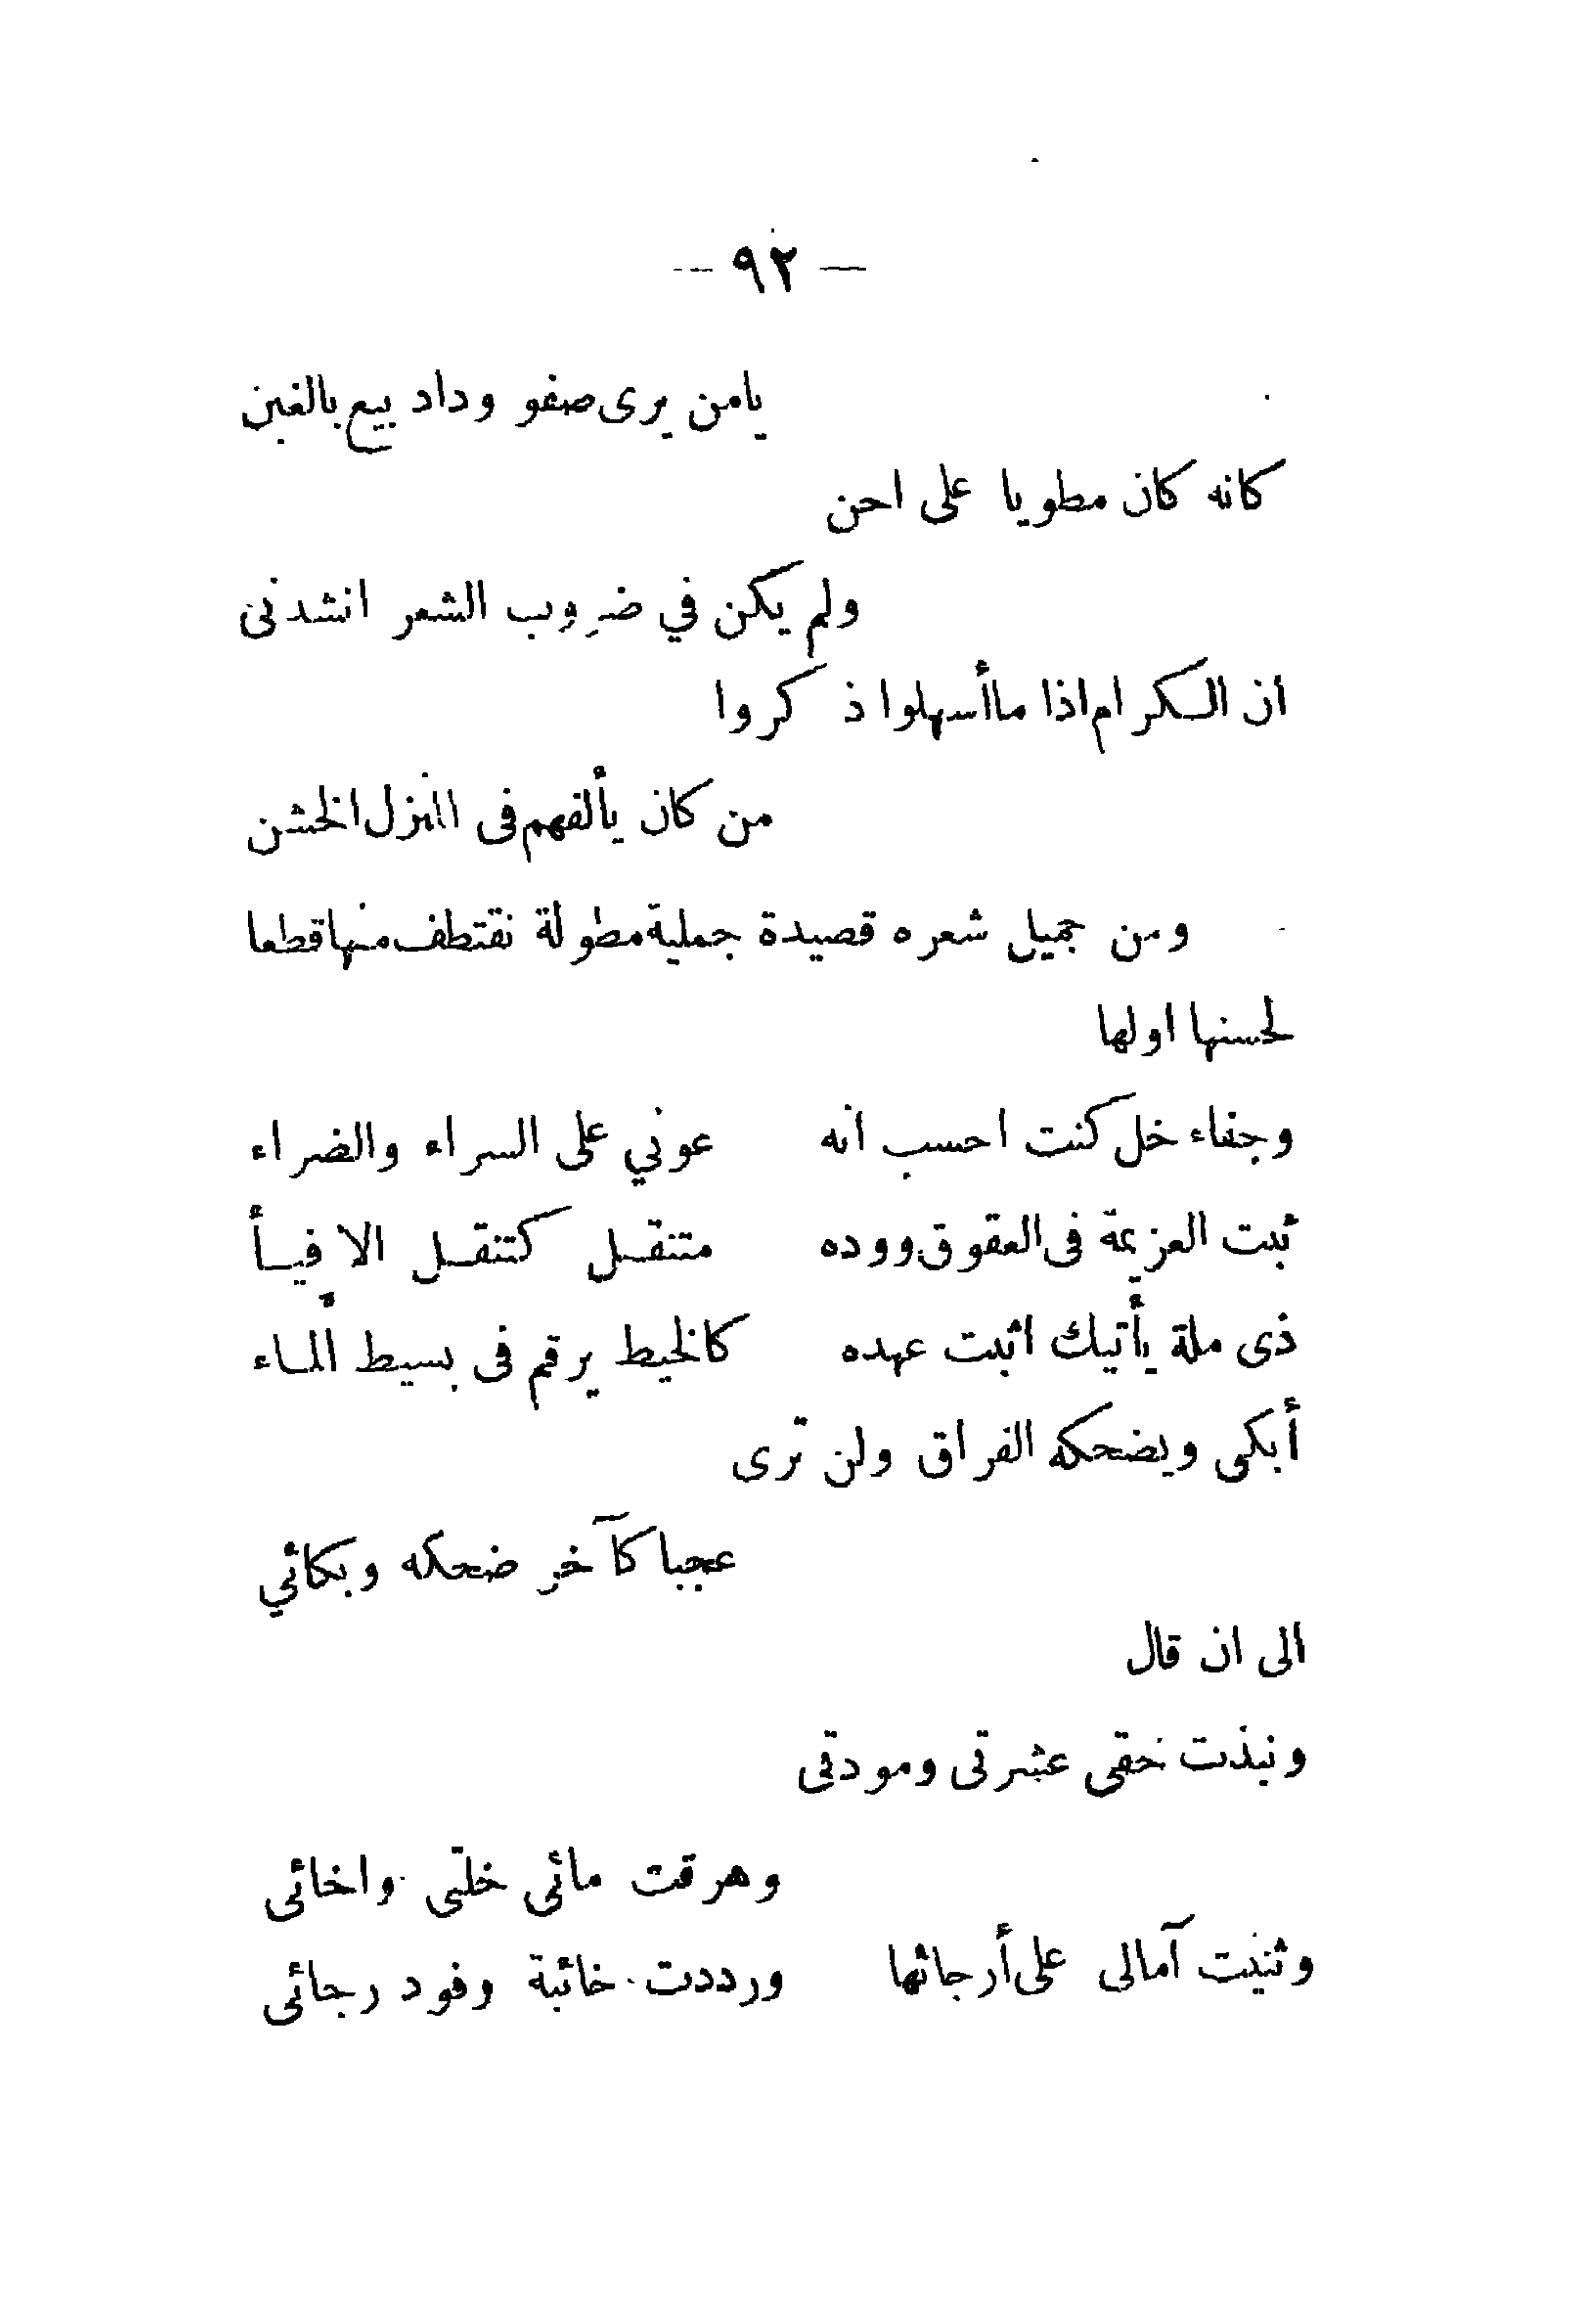 — ٩٢ —
يامن يرى صفو وداد بيع بالغبن
كانه كان مطويا على احن
ولم يكن في ضروب الشعر انشدنى
ان الكرام اذا ماأسهلوا ذكروا
من كان يألفهم فى المنزل الخشن
ومن جميل شعره قصيدة جملية مطولة نقتطف منها قطعا
لحسنها اولها
وجفاء خل كنت احسب انه عوني على السراء والضراء
ثبت العزيمة فى العقوق ووده متنقل كتنقل الافيأ
ذى ملة يأتيك اثبت عهده كالخيط يرقم فى بسيط الماء
أبكى ويضحكه الفراق ولن ترى
عجبا كآخر ضحكه وبكائي
الى ان قال
ونبذت حقى عشرتى ومودتى
وهرقت مائى خلتى واخائى
وثنيت آمالى على أرجائها ورددت خائبة وفود رجائى